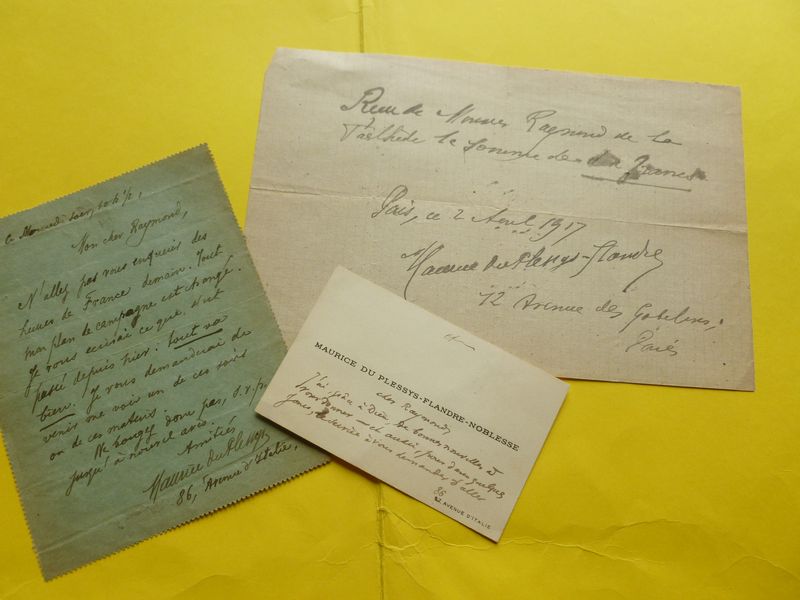 Ce Mercredi soir,
Mon cher Raymond,
N'allez pas vous enquérir des
heures de France demain. Tout
mon plan de campagne est changé.
Je vous écrirai ce que s'est
passé depuis hier: tout va
bien. Je vous demanderai de
venir me voir un de ces soirs
ou de ces matins.
Ne bougez donc pas, s.v.p.,
jusqu'à nouvel avis.
Amitiés
Maurice du Plessys
86, Avenue d'Italie.
Reçu de Monsieur Raymond de la
Tailhède la somme de francs
Paris, ce 2 Avril 1917
Maurice du Plessys-Flandre
12 Avenue des Gobelins,
Paris
MAURICE DU PLESSYS-FLANDRE-NOBLESSE
cher Raymond,
J'ai, grâce à Dieu, de bonnes nouvelles à
vous donner — et autre dans quelques
jours à vous demander d'aller
86
AVENUE D'ITALIE